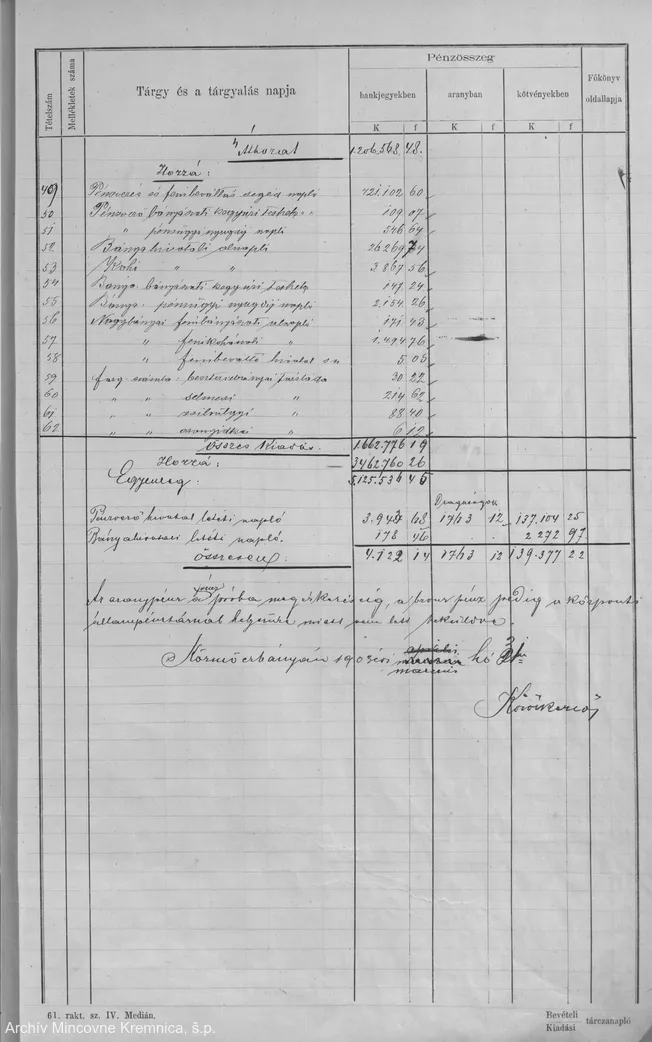 Tételszám
Mellékletek száma
Tárgy és a tárgyalás napja
Pénzösszeg
bankjegyekben
aranyban
kötvényekben
Főkönyv
oldallapja
K f K f K f
Áthozat 1.206.568 48.
Hozzá:
49 Pénzverés és fémbeváltás segéd napló 421.102 60
50 Pénzverő bányászati kegyúri " " 109 07
51 " pénzügyi nyugdíj napló 346 64
52 Bányahivatali alnapló 26.269 74
53 Kohó " " 3.867 56
54 Bánya bányászati kegyúri 147 24
55 Bánya pénzügyi nyugdíj napló 2.154 26
56 Nagybányai fémbányászati alnapló 171 43
57 " fémkohászati " 1.494 76
58 " fémbeváltó hivatal 5 05
59 besztercebányai 30 22
60 " " selmeci " 214 62
61 " " " 88 40
62 " " " 6 12
Összes kiadás. 1.662.776 19
Hozzá: 3.462.760 26
Egyenleg: 5.125.536 45
Pénzverő hivatal letéti napló 3.943 68 1763 12 137.104 25
Bányahivatali letéti napló. 178 46 2.272 97
Összesen: 4.122 14 1763 12 139.377 22
Az aranypénz a próba megérkezéséig, a bronz pénz pedig a központi
állampénztárnál helyszűke miatt nem lett beküldve.
Körmöcbányán 1903 évi hó
március
61. rakt. sz. IV. Medián.
Bevételi
Kiadási tárczanapló
Archív Mincovne Kremnica, š.p.